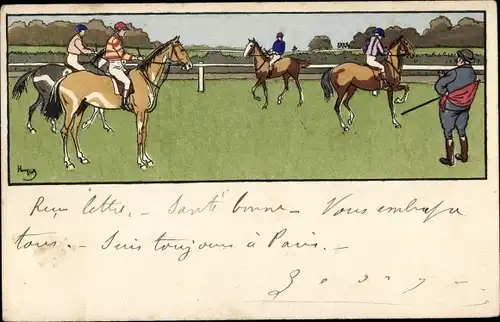 Reçu lettre. - Santé bonne - Vous embrasse
tous. - Suis toujours à Paris. -